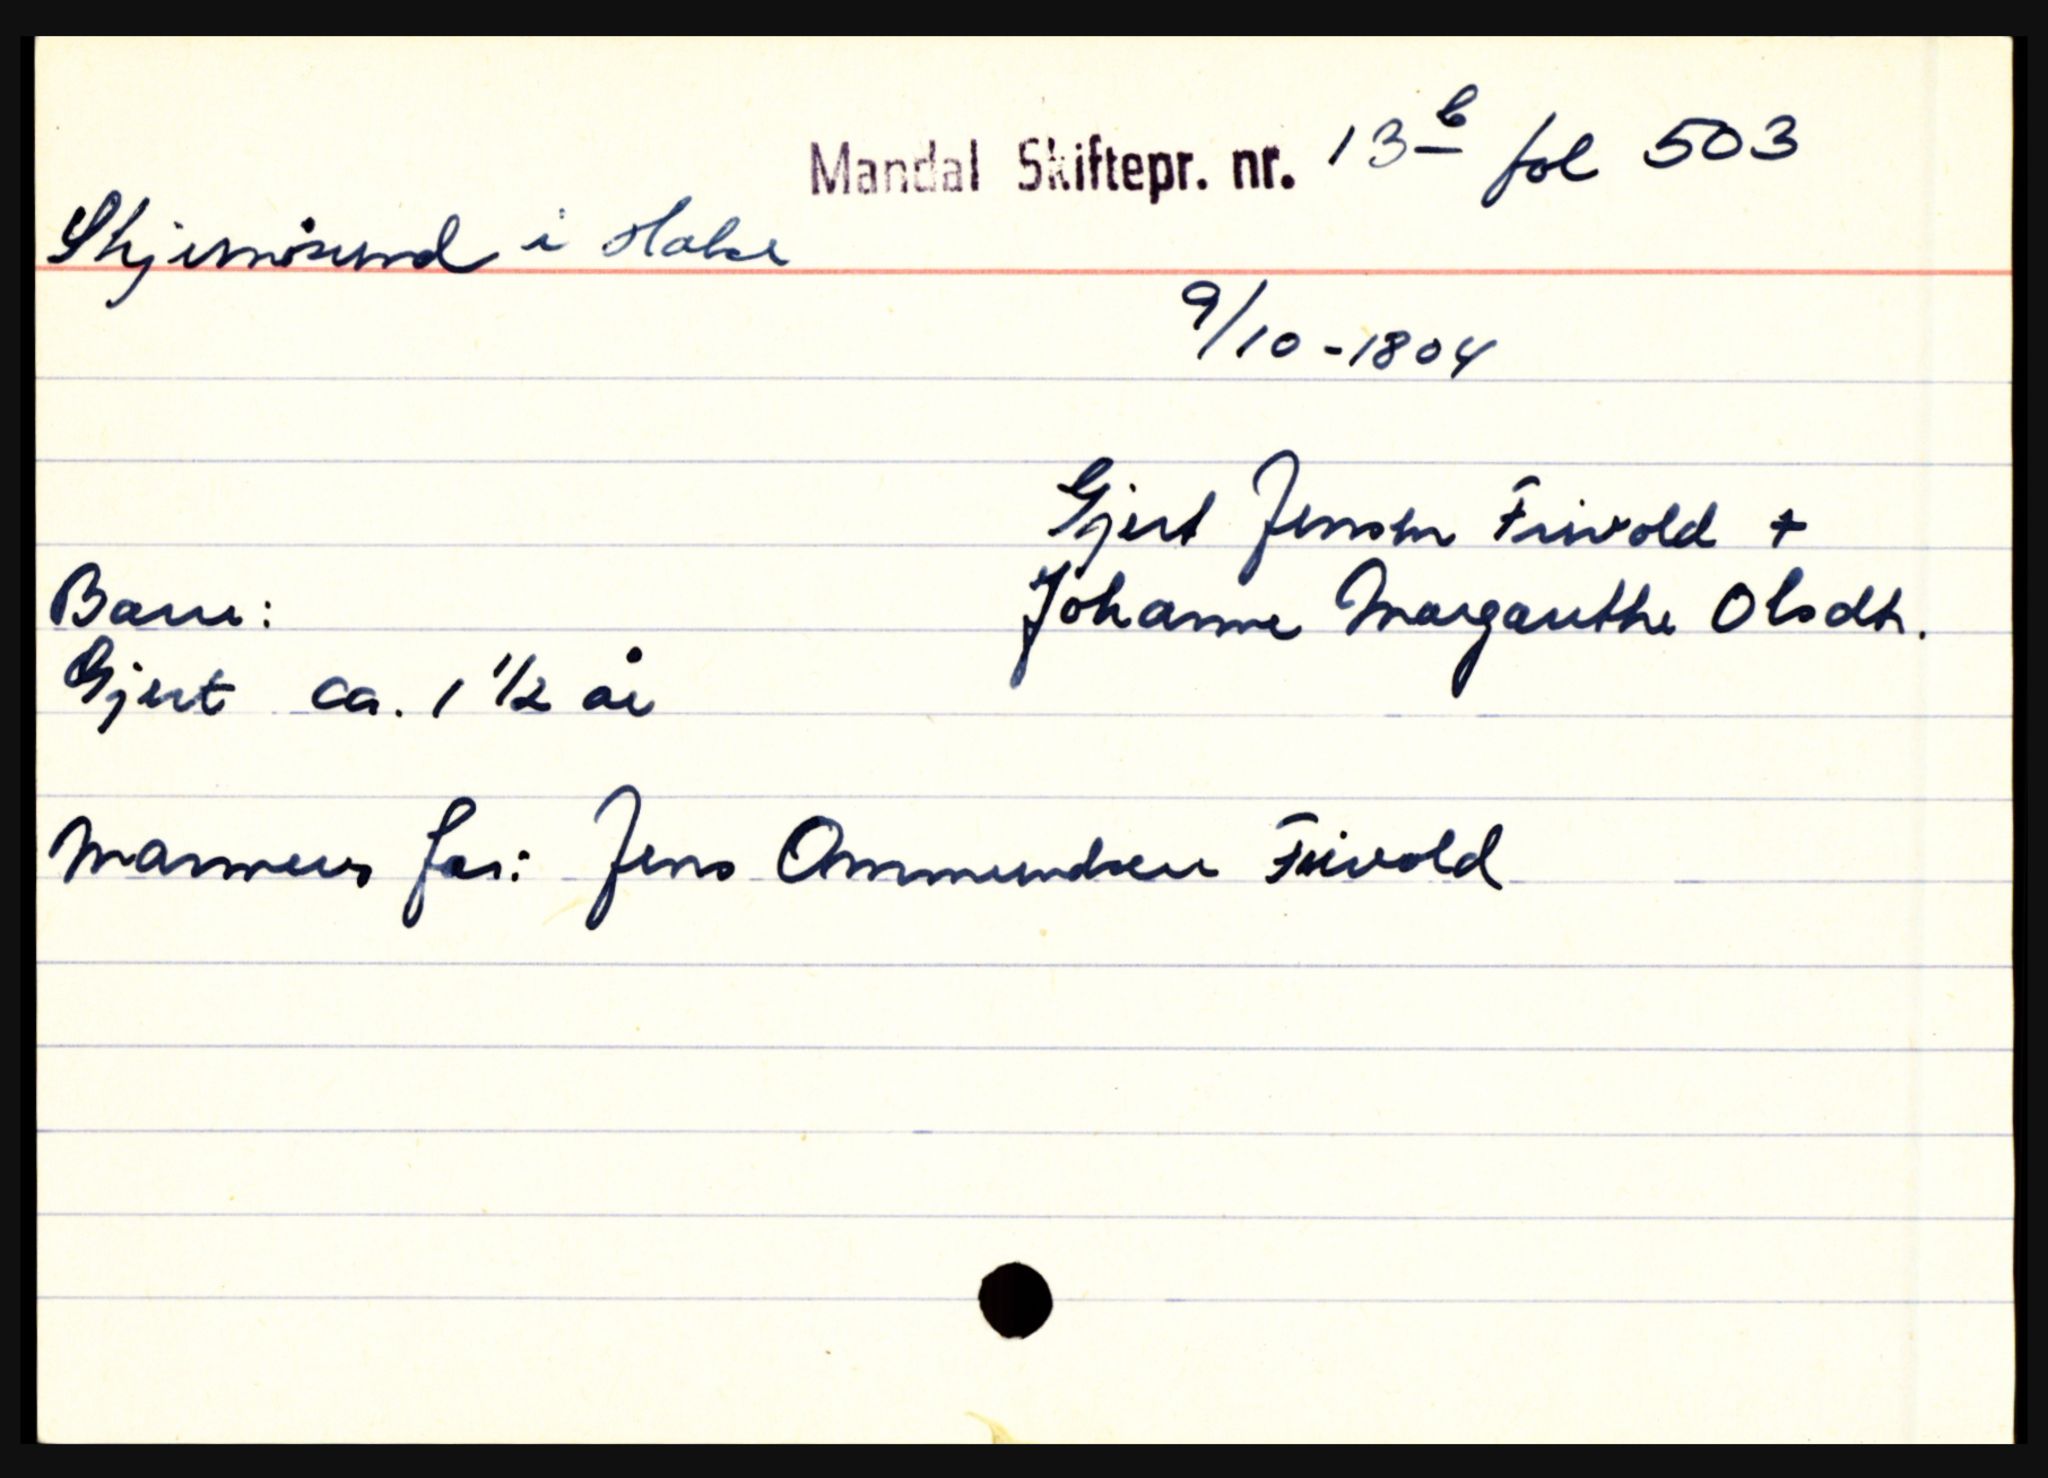 Mandal Skiftepr. nr. 13b fol 503
Skjernøsund i Halse
9/10-1804
Gjert Jensen Frivold +
Barn: Johanne Margarethe Olsdtr.
Gjert ca. 1 1/2 år
Mannens far: Jens Ommundsen Frivold